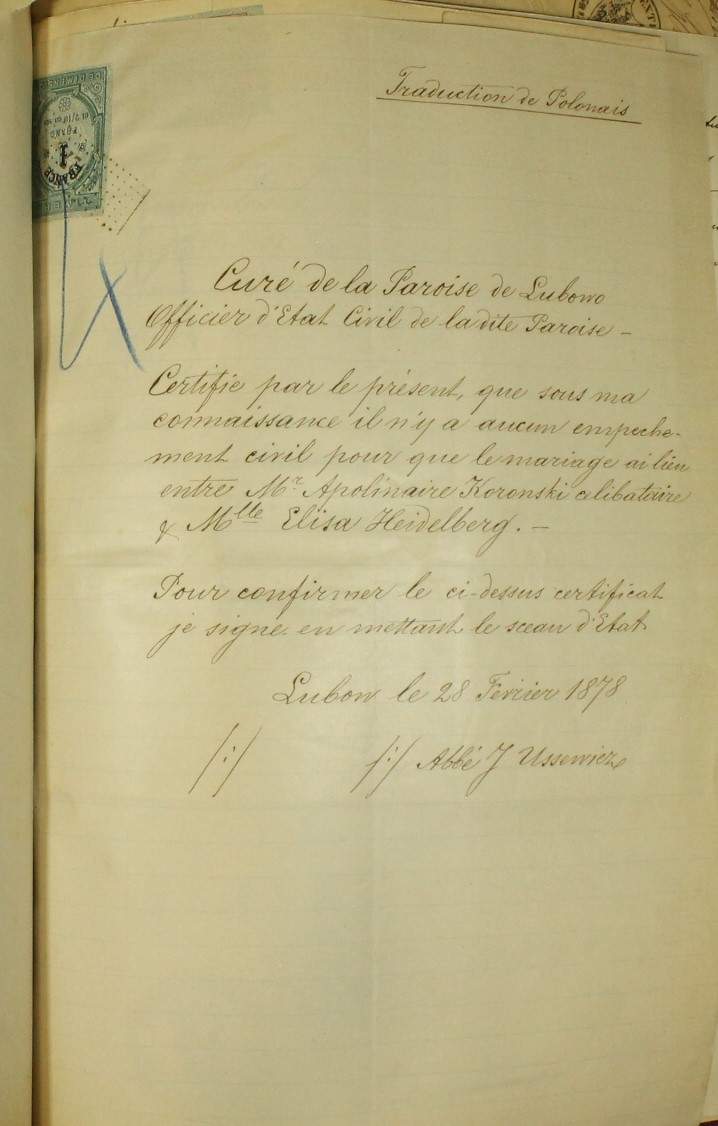 Traduction de Polonais
FRANCE
1
FRANC
Curé de la Paroise de Lubowo
Officier d'Etat Civil de la dite Paroise –
Certifie par le présent, que sous ma
connaissance il n'y a aucun empeche-
ment civil pour que le mariage ai lieu
entre Mr. Apolinaire Koronski celibataire
& Mlle Elisa Heidelberg. –
Pour confirmer le ci-dessus certificat
je signe en mettant le sceau d'Etat
Lubow le 28 Fevrier 1878
/:/ /:/ Abbé J Ussewicz